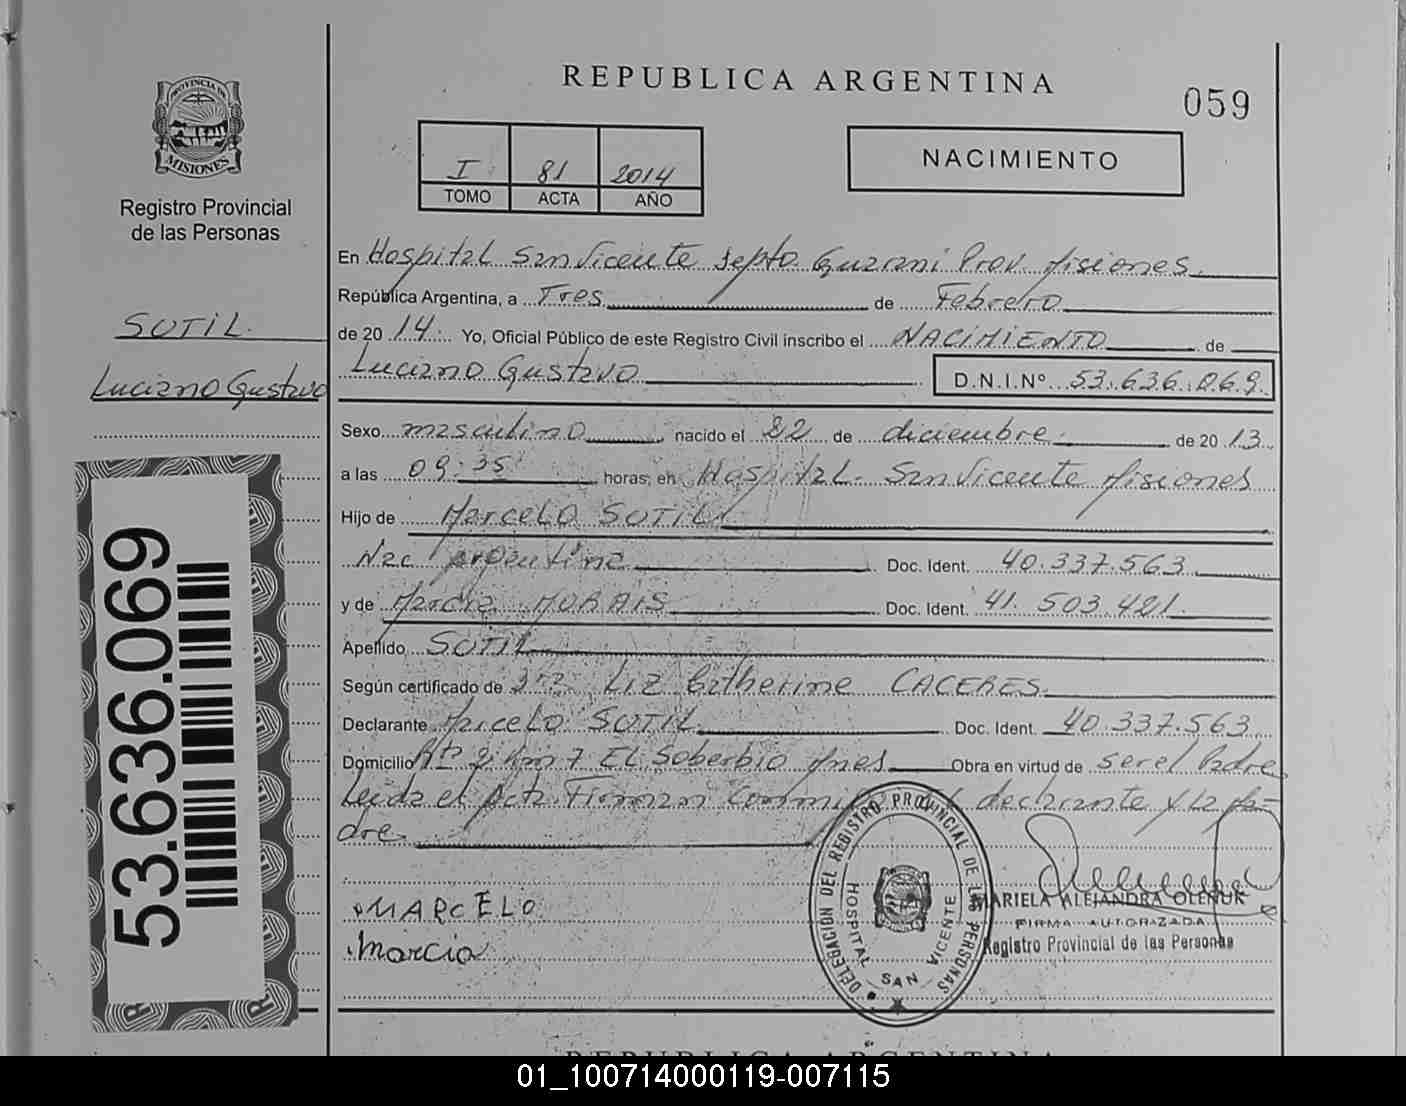 REPUBLICA ARGENTINA
059
PROVINCIA DE
MISIONES
Registro Provincial
de las Personas
I 81 2014
TOMO ACTA AÑO
NACIMIENTO
En Hospital San Vicente Depto Guarani Prov Misiones
República Argentina, a Tres de Febrero
de 20 14 Yo, Oficial Público de este Registro Civil inscribo el NACIMIENTO de
Luciano Gustavo D.N.I.Nº 53.636.069
SOTIL
Luciano Gustavo
Sexo masculino nacido el 22 de diciembre de 20 13
a las 09:35 horas, en Hospital San Vicente Misiones
Hijo de Marcelo SOTIL
Nac argentina Doc. Ident. 40.337.563
y de Marcia MORAIS Doc. Ident. 41.503.421
Apellido SOTIL
Según certificado de Dra Liz Catherine CACERES
Declarante Marcelo SOTIL Doc. Ident. 40.337.563
Domicilio Rta 2 Km 7 El Soberbio Mnes Obra en virtud de ser el Padre
Leida el Acta Firman el declarante y la Ma-
dre
53.636.069
MARCELO
Marcia
DELEGACIÓN DEL REGISTRO PROVINCIAL DE LAS PERSONAS
HOSPITAL SAN VICENTE
MARIELA ALEJANDRA OLENUK
FIRMA AUTORIZADA
Registro Provincial de las Personas
REPUBLICA ARGENTINA
01_100714000119-007115